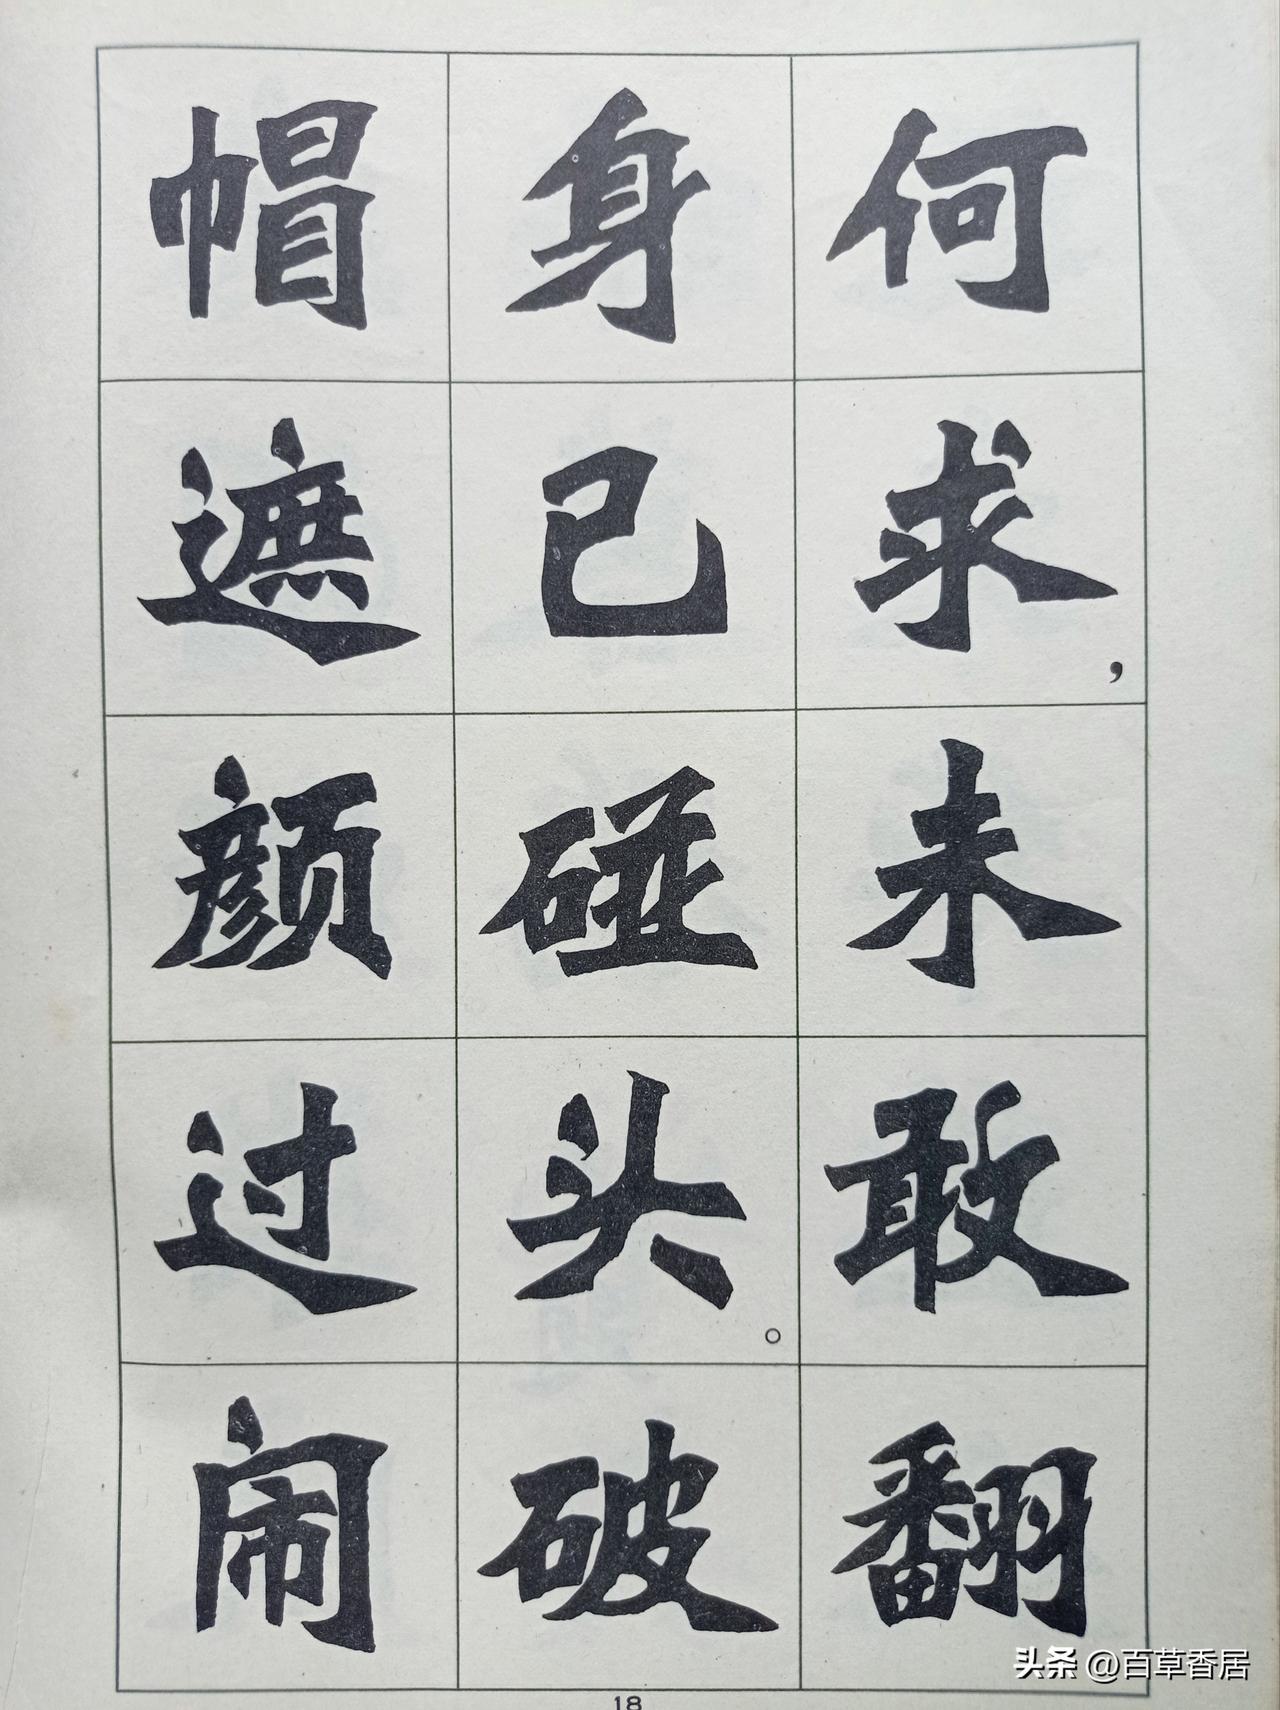 何求，未敢翻
身已碰头。破
帽遮颜过闹
18
头条 @百草香居